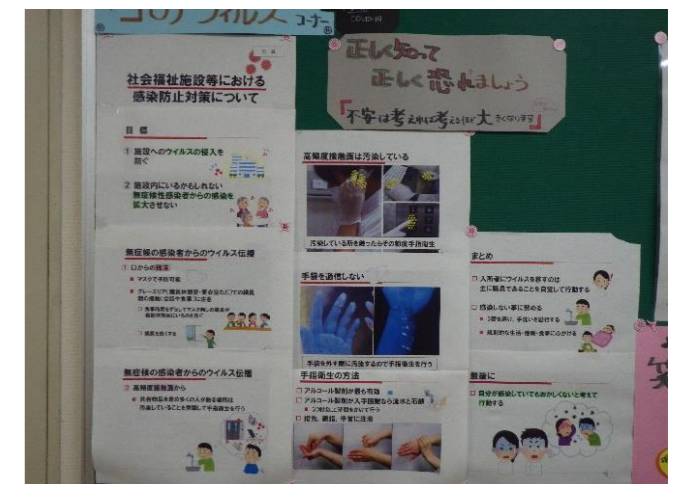 コロナウィルス コーナー
COVID-19
正しく知って
正しく恐れましょう
「不安は考えれば考えるほど大きくなります」
社会福祉施設等における
感染防止対策について
目 標
① 施設へのウイルスの侵入を
防ぐ
② 施設内にいるかもしれない
無症候性感染者からの感染を
拡大させない
無症候の感染者からのウイルス伝播
① 口からの飛沫
マスクで予防可能
無症候の感染者からのウイルス伝播
② 高頻度接触面から
高頻度接触面は汚染している
汚染している所を触ったらその都度手指衛生
手袋を過信しない
手袋を外す際に汚染するので手指衛生を行う
手指衛生の方法
□ アルコール製剤が最も有効
□ アルコール製剤が入手困難なら流水と石鹸
□ 指先、親指、手首に注意
まとめ
□ 入所者にウイルスを移すのは
主に職員であることを自覚して行動する
□ 感染しない事に努める
3密を避け、手洗いを励行する
規則的な生活・睡眠・食事に心がける
最後に
□ 自分が感染していてもおかしくないと考えて
行動する
笑